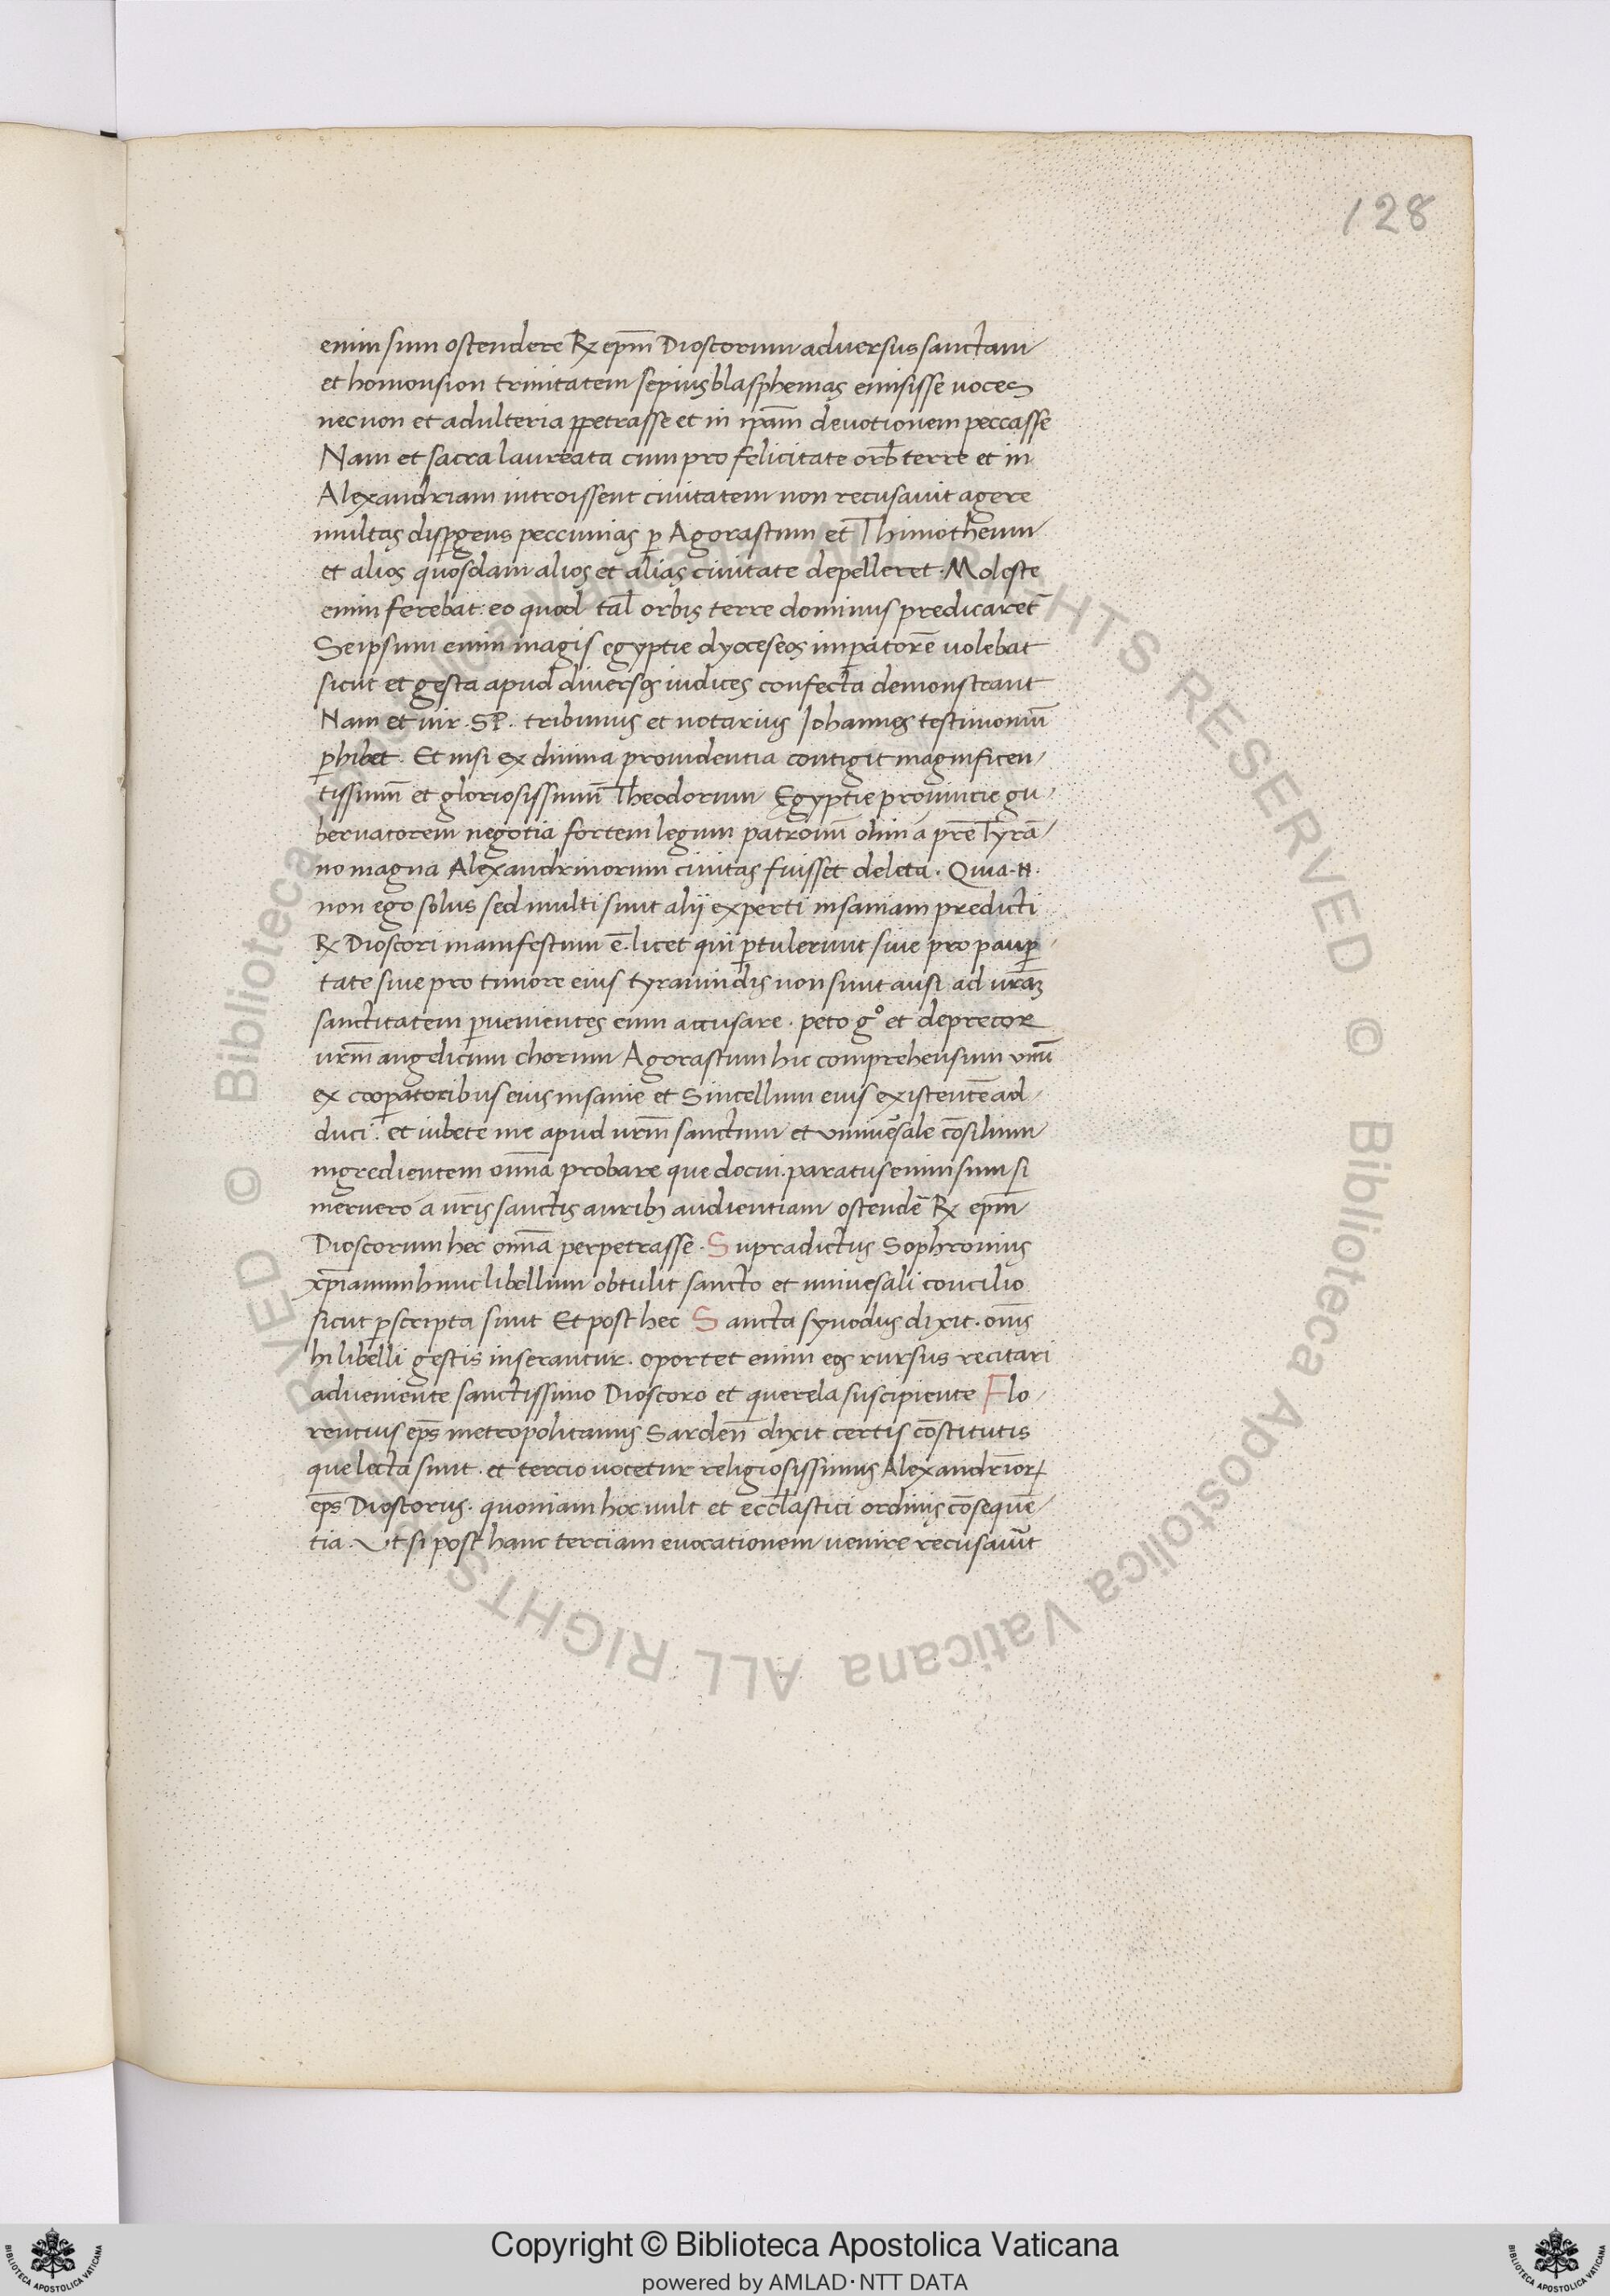 128
enim sum ostendere R epm̄ Dioscorum adversus sanctam
et homousion trinitatem sepius blasphemas emisisse uoces
necnon et adulteria ꝑpetrasse et in ip̄am devotionem peccasse
Nam et sacra laureata cum pro felicitate orb̄ terre et in
Alexandriam introissent civitatem non recusavit agere
multas disꝑgens peccunias ꝑ Agorastum et Thimotheum
et alios quosdam alios et alias civitate depelleret. Moleste
enim ferebat: eo quod tal̄ orbis terre dominus predicaret̄
Seipsum enim magis egyptie dyoceseos imꝑatorē uolebat
sicut et gesta apud diversos iudices confecta demonstrant
Nam et uir. SP. tribunus et notarius Iohannes testimoniū
ꝑhibet. Et nisi ex divina providentia contigit magnificen
tissimū et gloriosissimū Theodorum Egyptie provincie gu
bernatorem negotia fortem legum patronū olim á pre Tyrā
no magna Alexandrinorum civitas fuisset deleta. Quia .n.
non ego solus sed multi sunt alii experti insaniam predicti
R Dioscori manifestum ē. licet qui ꝑtulerunt sive pro pauꝑ
tate sive pro timore eius tyrannidis non sunt ausi ad vr̄aꝫ
sanctitatem ꝑuenientes eum accusare. peto gº et deprecor
vrm̄ angelicum chorum Agorastum hic comprehensum vnū
ex cooꝑatoribus eius insanie et Sincellum eius existentē ad
duci. et iubete me apud vrm̄ sanctum et vniuēsale cōsilium
ingredientem omīa probare que docui. paratus enim sum si
meruero á vr̄is sanctis auribꝫ audientiam ostendē R epm̄
Dioscorum hec omīa perpetrasse. Supradictus Sophronius
xp̄ianum hunc libellum obtulit sancto et univesali concilio
sicut ꝑscripta sunt Et post hec Sancta synodus dixit. om̄s
hi libelli gestis inserantur. oportet enim eos rursus recitari
adveniente sanctissimo Dioscoro et querela suscipiente Flo
rentius ep̄s metropolitanus Sarden̄ dixit certis cōstitutis
que lecta sunt. et tercio vocetur religiosissimus Alexandrīoꝝ
ep̄s Dioscorus. quoniam hoc uult et eccl̄astici ordinis cōsequē
tia. Vt si post hanc terciam evocationem venire recusavūt
© Biblioteca Apostolica Vaticana ALL RIGHTS RESERVED © Biblioteca Apostolica Vaticana ALL RIGHTS RESERVED
BIBLIOTECA APOSTOLICA VATICANA
Copyright © Biblioteca Apostolica Vaticana
powered by AMLAD·NTT DATA
BIBLIOTECA APOSTOLICA VATICANA